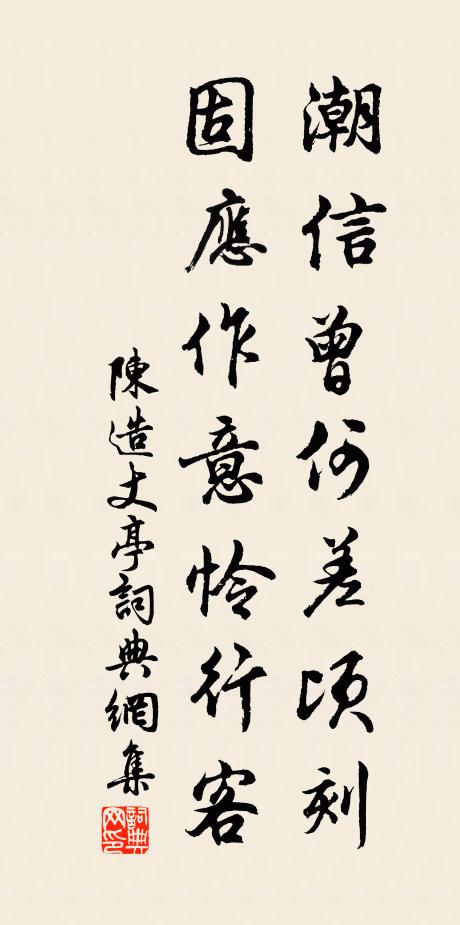 潮信曾何差頃刻
固應作意怜行客
陳造丈亭詞典網集
詞典网印